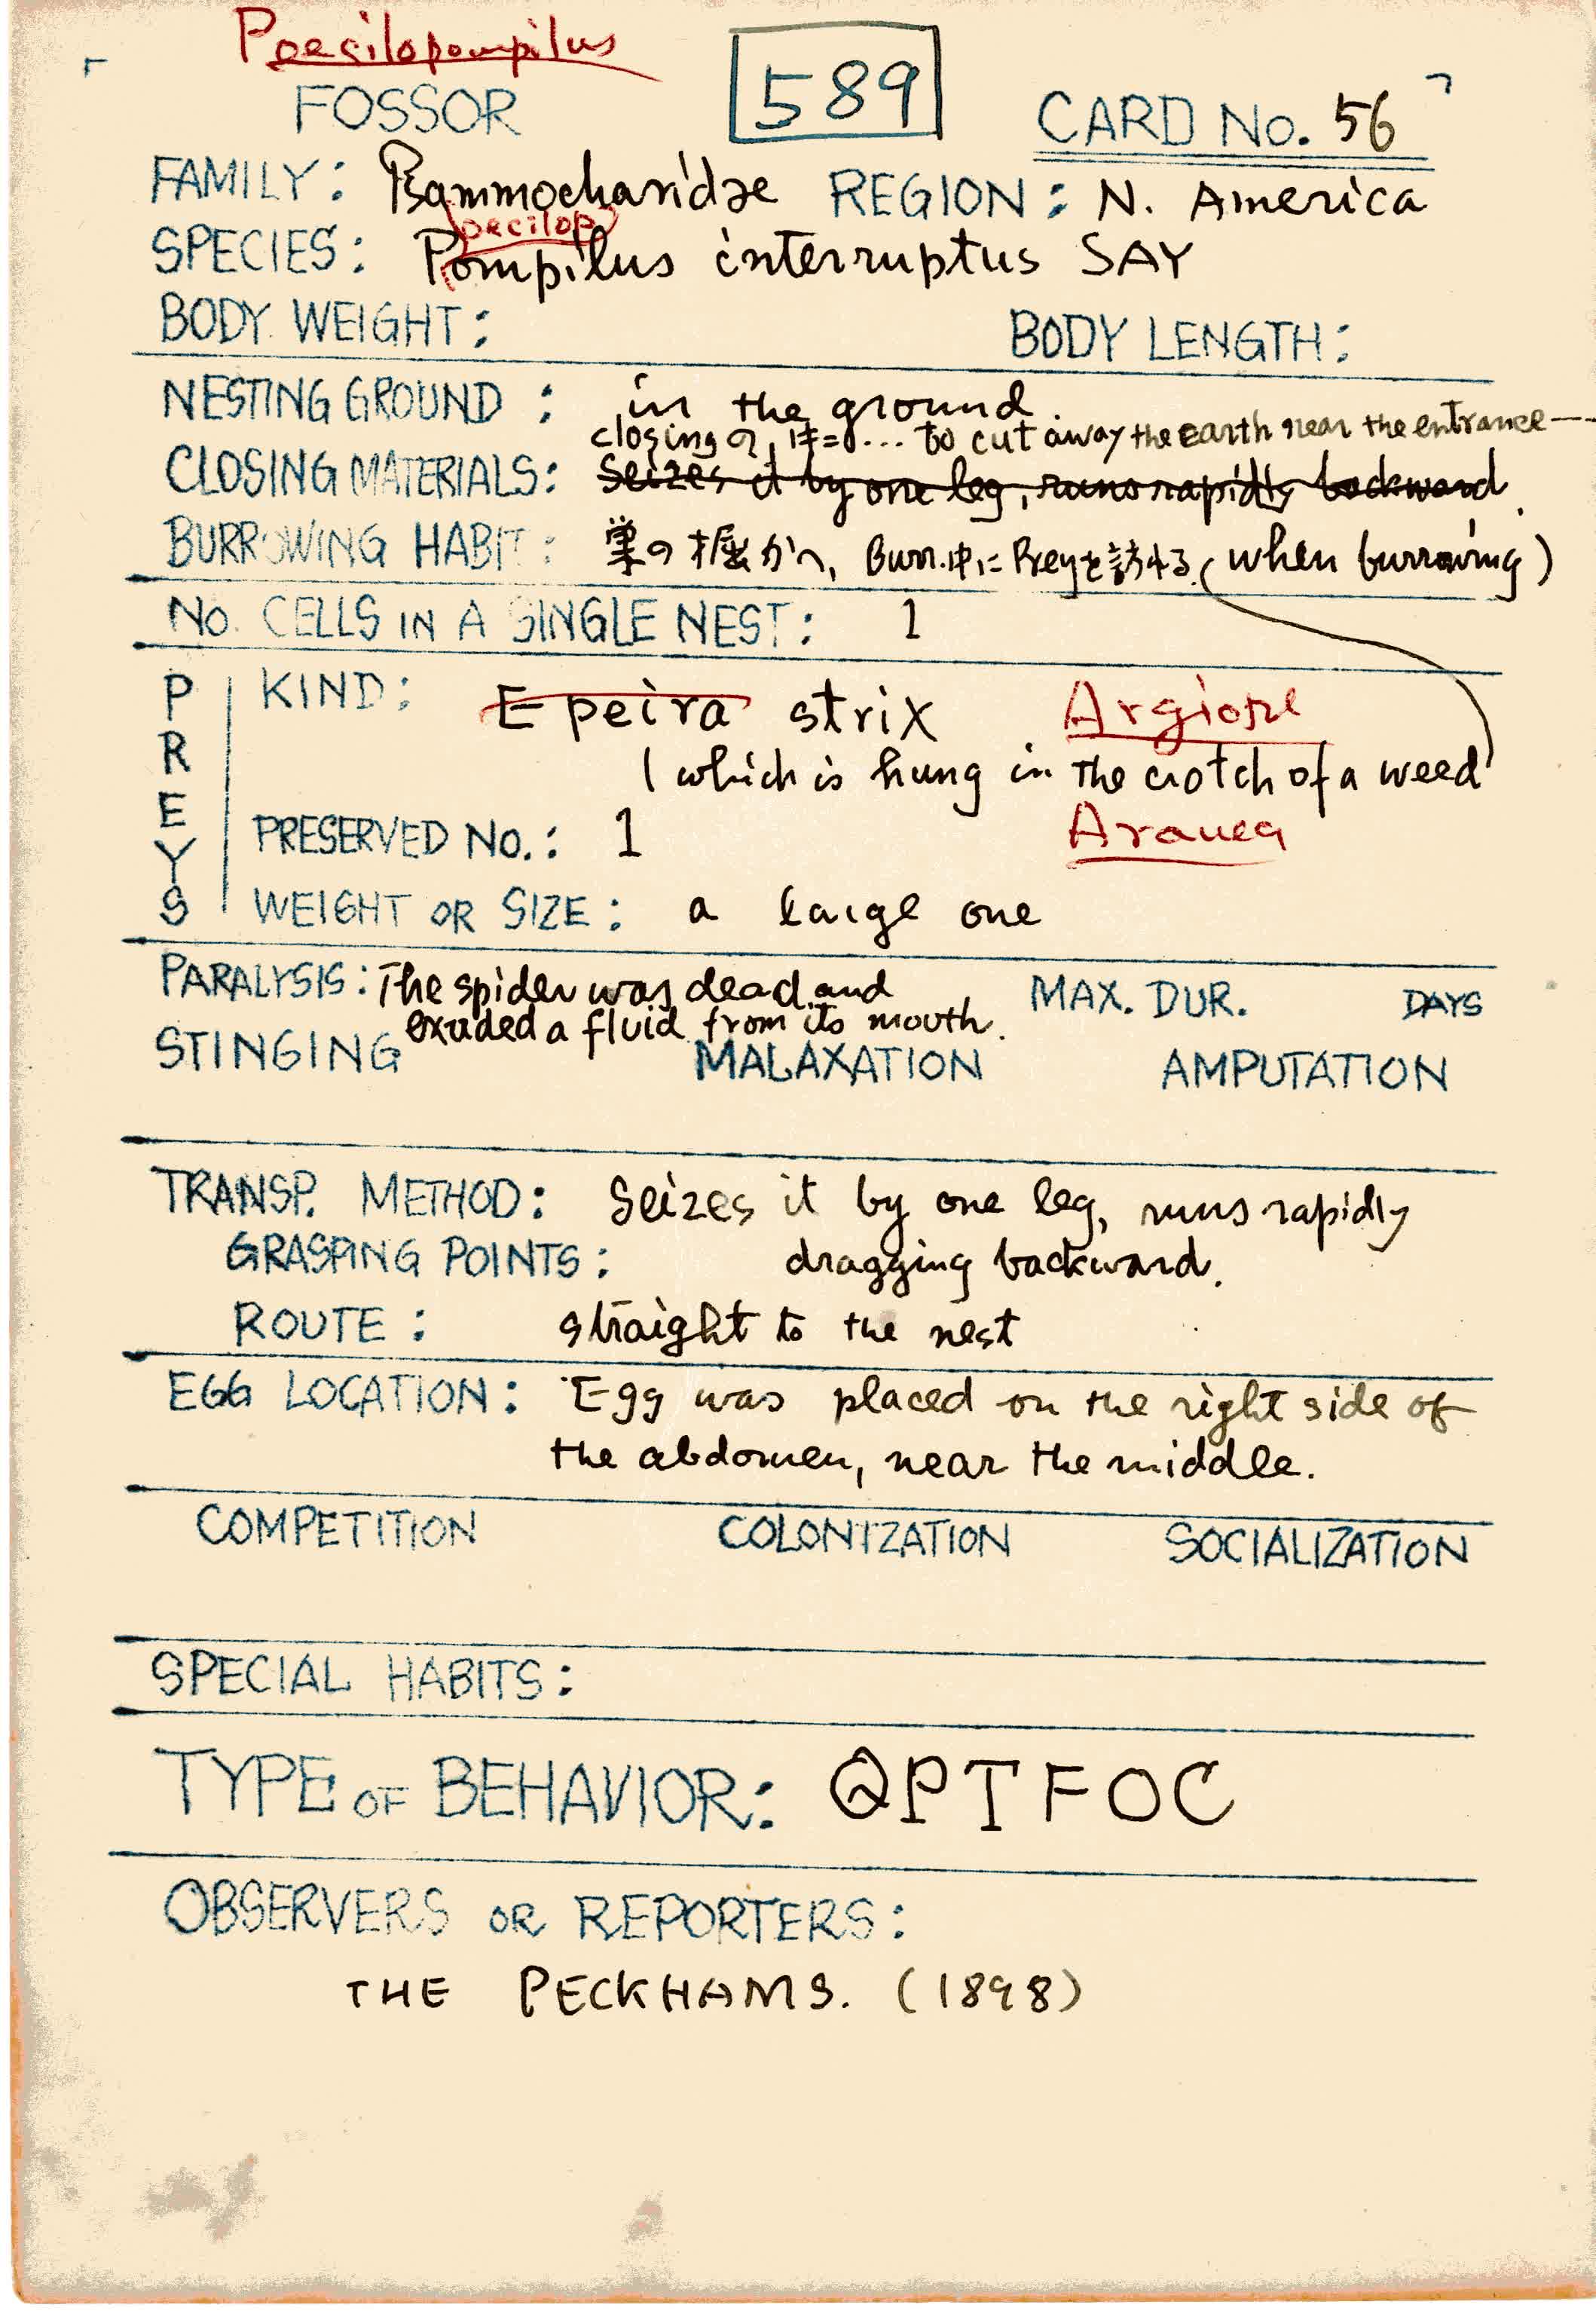 Poecilopompilus
FOSSOR
589
CARD No. 56
FAMILY: Psammocharidae REGION: N. America
poecilop
SPECIES: Pompilus interruptus SAY
BODY WEIGHT:
BODY LENGTH:
NESTING GROUND: in the ground.
closing の ... to cut away the earth near the entrance
CLOSING MATERIALS: Seizes it by one leg, runs rapidly backward.
BURROWING HABIT: 巣の掘, Burr.中に Preyを訪する (when burrowing)
No. CELLS IN A SINGLE NEST: 1
PREYS
KIND: Epeira strix Argiope
which is hung in the crotch of a weed
Aranea
PRESERVED No.: 1
WEIGHT OR SIZE: a large one
PARALYSIS: The spider was dead and
exuded a fluid from its mouth.
MAX. DUR. DAYS
STINGING MALAXATION AMPUTATION
TRANSP. METHOD: Seizes it by one leg, runs rapidly
GRASPING POINTS: dragging backward.
ROUTE: straight to the nest
EGG LOCATION: Egg was placed on the right side of
the abdomen, near the middle.
COMPETITION COLONIZATION SOCIALIZATION
SPECIAL HABITS:
TYPE OF BEHAVIOR: QPTFOC
OBSERVERS OR REPORTERS:
THE PECKHAMS. (1898)